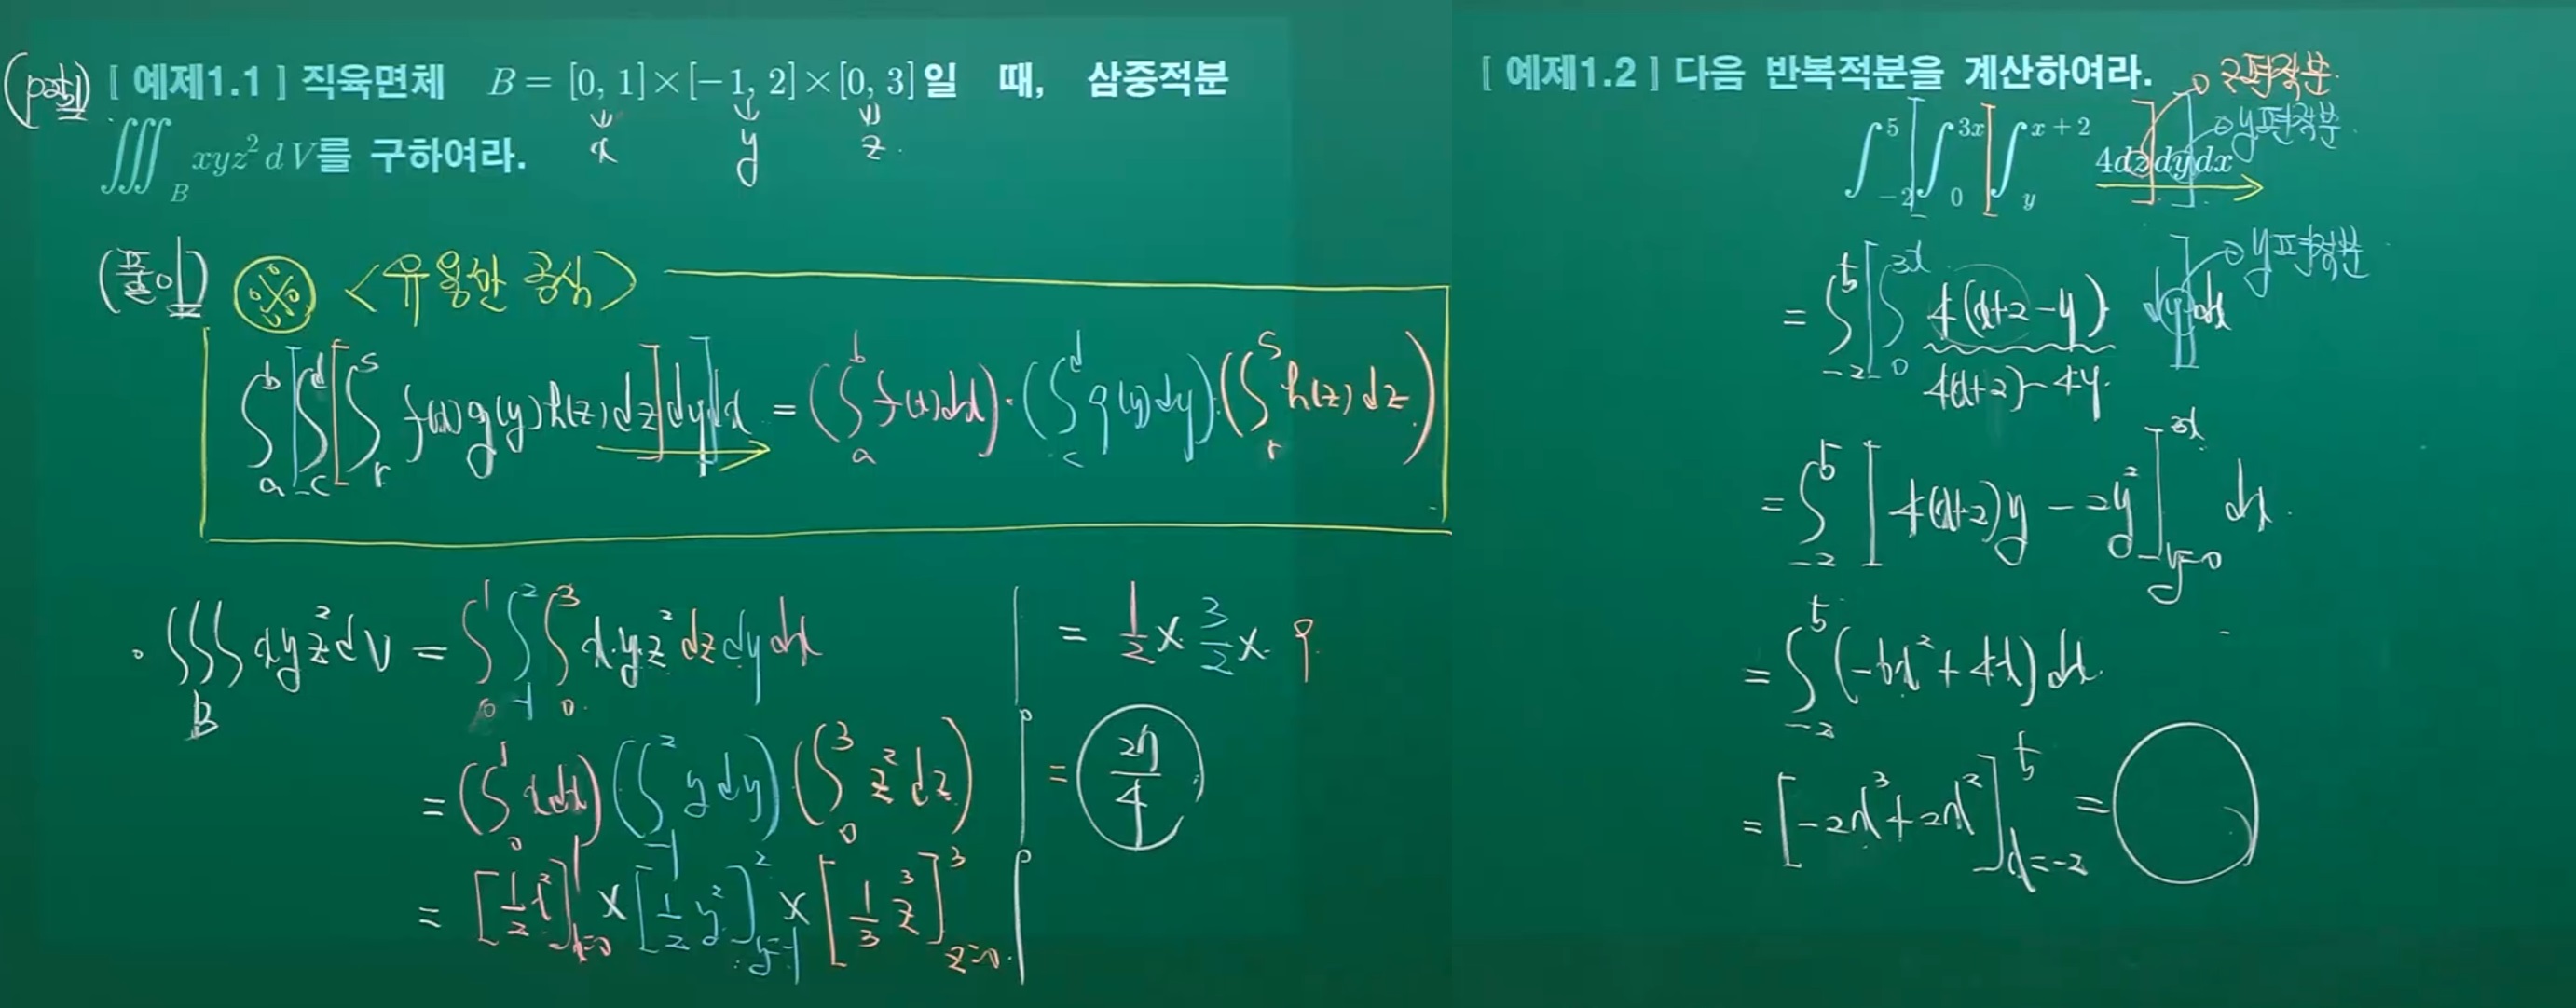 (pat리) [ 예제1.1 ] 직육면체 B = [0, 1]×[−1, 2]×[0, 3]일 때, 삼중적분
x y z
∭_B xyz² dV를 구하여라.
(풀이) <유용한 공식>
∫_a^b [∫_c^d [∫_r^s f(x)g(y)h(z)dz]dy]dx = (∫_a^b f(x)dx)·(∫_c^d g(y)dy)·(∫_r^s h(z)dz)
∭_B xyz²dV = ∫_0^1 ∫_{-1}^2 ∫_0^3 x·y·z² dz dy dx
= (∫_0^1 xdx)(∫_{-1}^2 ydy)(∫_0^3 z²dz)
= [1/2 x²]_{x=0}^1 × [1/2 y²]_{y=-1}^2 × [1/3 z³]_{z=0}^3
= 1/2 × 3/2 × 9
= 27/4
[ 예제1.2 ] 다음 반복적분을 계산하여라.
z편적분
y편적분
∫_{-2}^5 [∫_0^{3x} [∫_y^{x+2} 4dz]dy]dx
y편적분
= ∫_{-2}^5 [∫_0^{3x} 4(x+2-y) dy]dx
4(x+2)-4y
= ∫_{-2}^5 [4(x+2)y - 2y²]_{y=0}^{3x} dx
= ∫_{-2}^5 (-6x²+4x)dx
= [-2x³+2x²]_{x=-2}^5 =